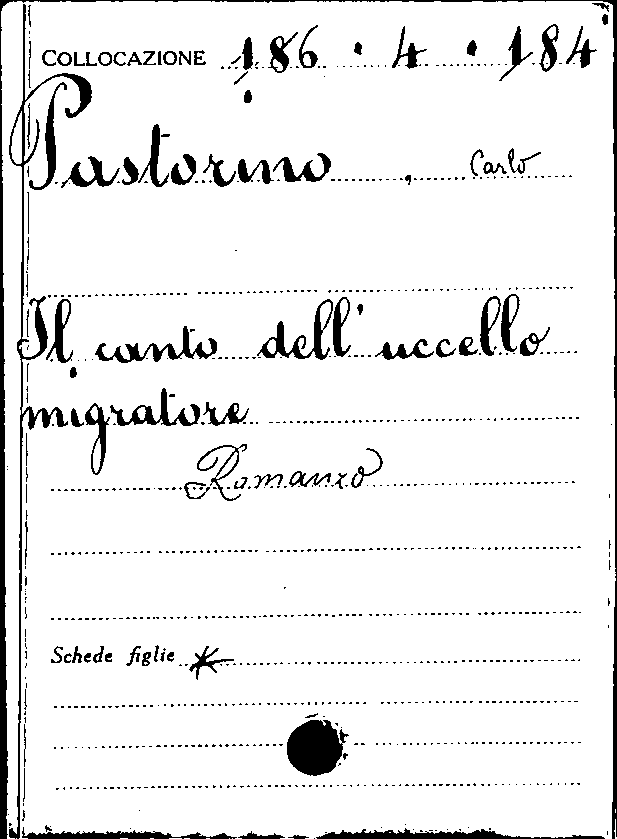 COLLOCAZIONE 186 · 4 · 184
Pastorino , Carlo
Il canto dell'uccello
migratore
Romanzo
Schede figlie *